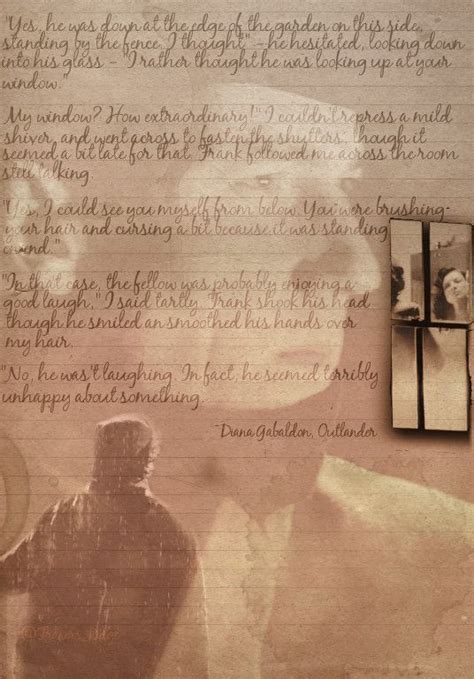 "Yes, he was down at the edge of the garden on this side,
standing by the fence. I thought" - he hesitated, looking down
into his glass - "I rather thought he was looking up at your
window."
My window? How extraordinary!" I couldn't repress a mild
shiver, and went across to fasten the shutters, though it
seemed a bit late for that. Frank followed me across the room
still talking.
"Yes, I could see you myself from below. You were brushing
your hair and cursing a bit because it was standing
on end."
"In that case, the fellow was probably enjoying a
good laugh," I said tartly. Frank shook his head
though he smiled an smoothed his hands over
my hair.
"No, he was't laughing. In fact, he seemed terribly
unhappy about something.
~Diana Gabaldon, Outlander